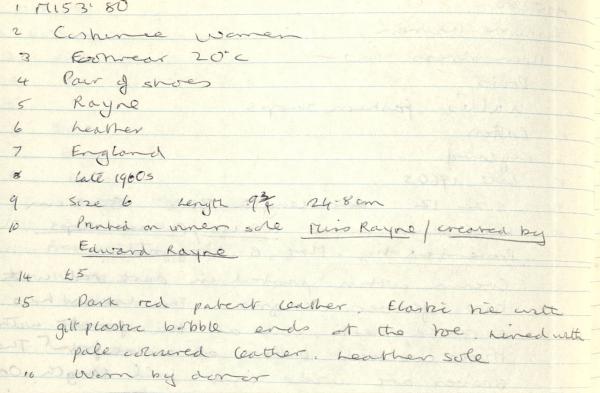 1 M153'80
2 Costume Women
3 Footwear 20°C
4 Pair of shoes
5 Rayne
6 Leather
7 England
8 Late 1960s
9 Size 6 Length 9¾ 24.8cm
10 Printed on inner sole Miss Rayne / created by
Edward Rayne
14 £5
15 Dark red patent leather. Elastic tie with
gilt plastic bobble ends at the toe. Lined with
pale coloured leather. Leather sole
16 Worn by donor